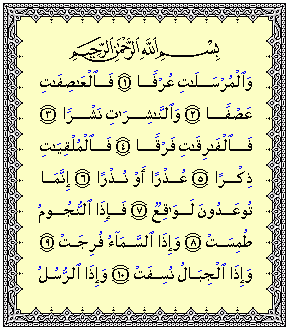 بِسْمِ ٱللَّهِ ٱلرَّحْمَٰنِ ٱلرَّحِيمِ
وَٱلْمُرْسَلَٰتِ عُرْفًا ١ فَٱلْعَٰصِفَٰتِ
عَصْفًا ٢ وَٱلنَّٰشِرَٰتِ نَشْرًا ٣
فَٱلْفَٰرِقَٰتِ فَرْقًا ٤ فَٱلْمُلْقِيَٰتِ
ذِكْرًا ٥ عُذْرًا أَوْ نُذْرًا ٦ إِنَّمَا
تُوعَدُونَ لَوَٰقِعٌ ٧ فَإِذَا ٱلنُّجُومُ
طُمِسَتْ ٨ وَإِذَا ٱلسَّمَآءُ فُرِجَتْ ٩
وَإِذَا ٱلْجِبَالُ نُسِفَتْ ١٠ وَإِذَا ٱلرُّسُلُ